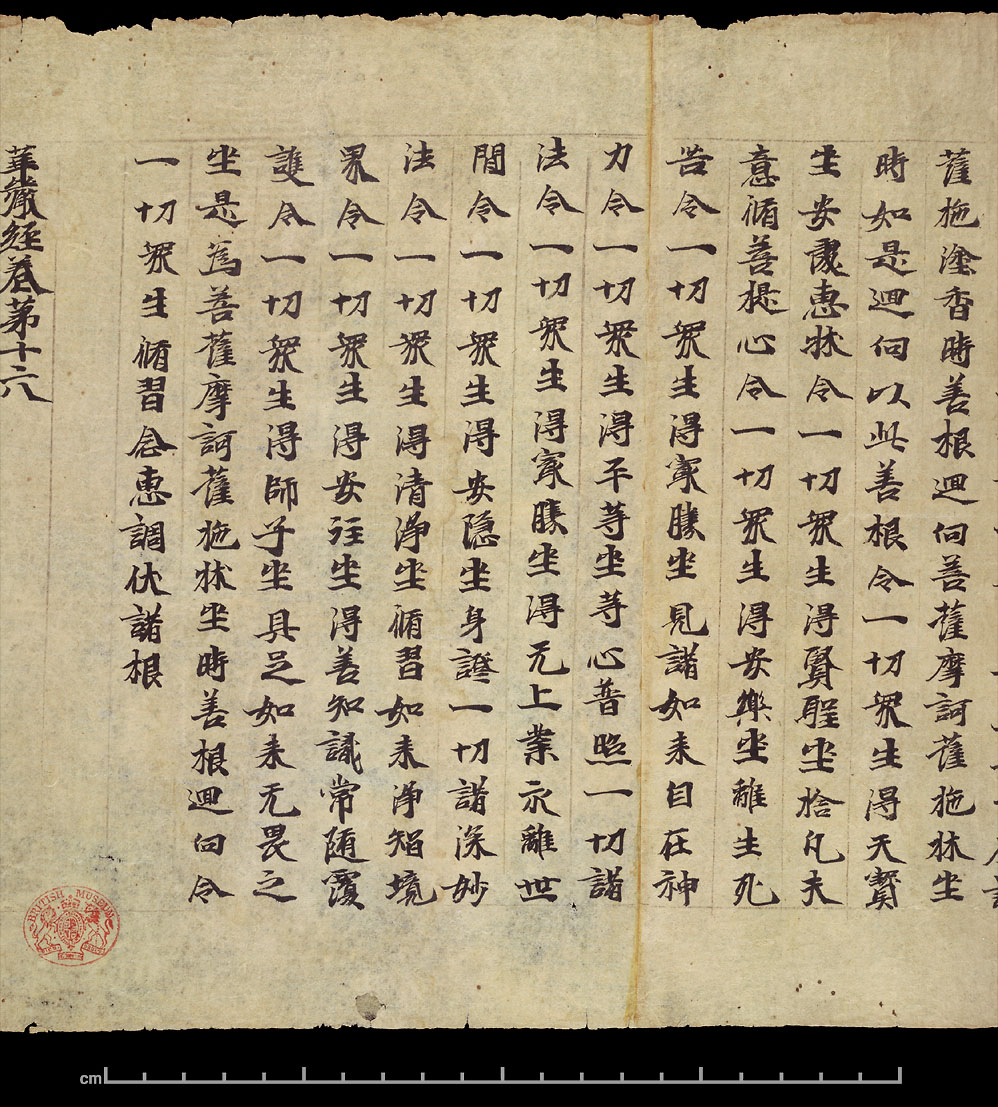 薩施塗香時善根迴向菩薩摩訶薩施牀坐
時如是迴向以此善根令一切衆生得天寶
坐安處惠牀令一切衆生得賢聖坐捨凡夫
意脩菩提心令一切衆生得安樂坐離生死
苦令一切衆生得冣勝坐見諸如来自在神
力令一切衆生得平等坐等心普照一切諸
法令一切衆生得冣勝坐得无上業永離世
間令一切衆生得安隱坐身證一切諸深妙
法令一切衆生得清淨坐脩習如来淨智境
界令一切衆生得安住坐得善知識常随覆
護令一切衆生得師子坐具足如来无畏之
坐是為菩薩摩訶薩施牀坐時善根迴向令
一切衆生脩習念惠調伏諸根
華嚴經卷第十六
BRITISH MUSEUM
cm